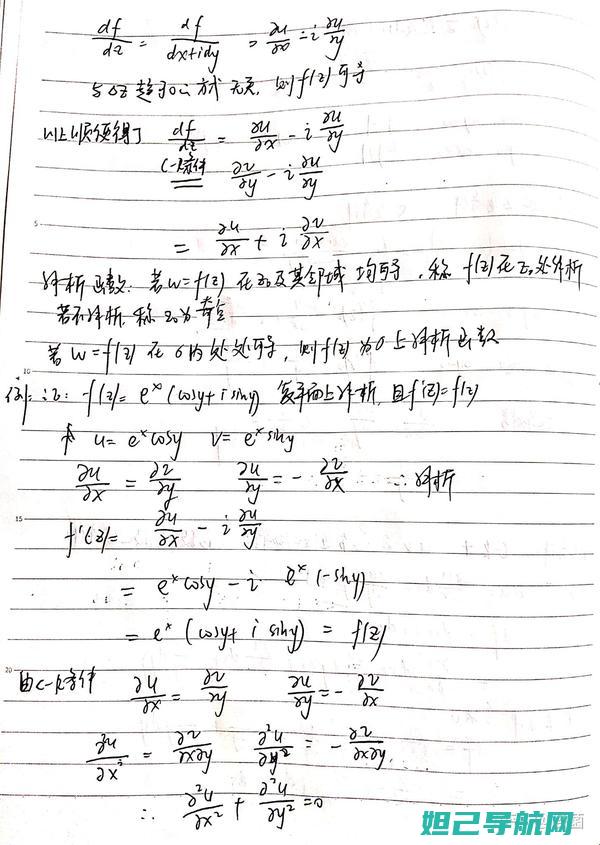 df/dz = df/dx+idy = ∂u/∂x - i ∂u/∂y
与Δz趋于0的方式无关,则f(z)可导
以上顺便得了 df/dz = ∂u/∂x - i ∂u/∂y
C-R条件 ∂v/∂y - i ∂u/∂y
5
= ∂u/∂x + i ∂v/∂x
解析函数: 若w=f(z) 在z₀及其邻域 均可导, 称 f(z)在z₀处解析
若不解析,称z₀为奇点
若 w=f(z) 在σ内处处可导, 则f(z)为σ上解析函数
10
例: 证: f(z)= eˣ(cosy+isiny) 复平面上解析,且f'(z)=f(z)
u= eˣcosy v= eˣsiny
∂u/∂x = ∂v/∂y ∂u/∂y = - ∂v/∂x ∴解析
15
f'(z)= ∂u/∂x - i ∂u/∂y
= eˣcosy - i eˣ(-siny)
= eˣ(cosy+ i siny) = f(z)
20
由C-R条件 ∂u/∂x = ∂v/∂y ∂u/∂y = - ∂v/∂x
∂²u/∂x² = ∂v/∂x∂y ∂²u/∂y² = - ∂v/∂x∂y
∴ ∂²u/∂x² + ∂²u/∂y² =0
妲己导航网